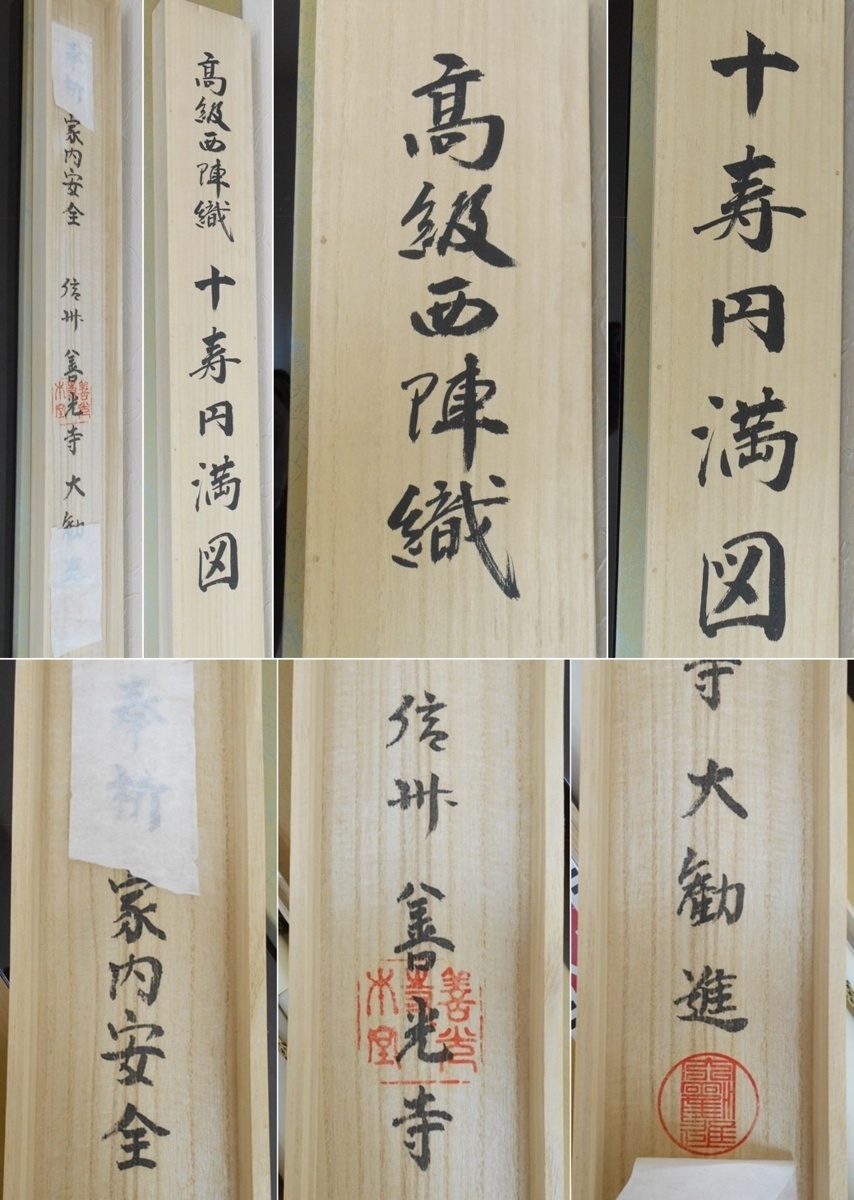 奉祈
家内安全
信州
善光寺
大勧
高級西陣織
十寿円満図
高級西陣織
十寿円満図
奉祈
家内安全
信州
善光寺
善光
寺
本堂
寺
大勧進